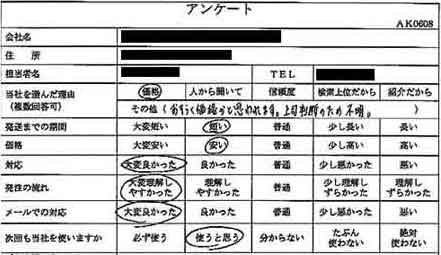 アンケート
AK0608
会社名
住 所
担当者名 TEL
当社を選んだ理由 価格 人から聞いて 信頼度 検索上位だから 紹介だから
(複数回答可) その他( 価格かと思われます。上司判断のため不明。 )
発送までの期間 大変短い 短い 普通 少し長い 長い
価格 大変安い 安い 普通 少し高い 高い
対応 大変良かった 良かった 普通 少し悪かった 悪い
発注の流れ 大変理解しやすかった 理解しやすかった 普通 少し理解しずらかった 理解しずらかった
メールでの対応 大変良かった 良かった 普通 少し悪かった 悪い
次回も当社を使いますか 必ず使う 使うと思う 分からない たぶん使わない 絶対使わない